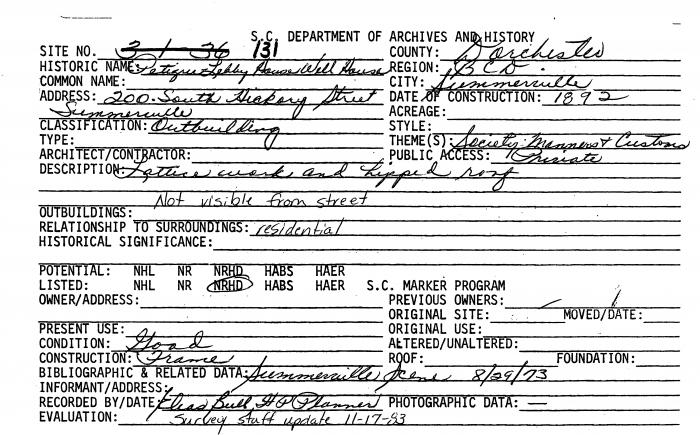 S.C. DEPARTMENT OF ARCHIVES AND HISTORY
SITE NO. 3 / 36 131 COUNTY: Dorchester
HISTORIC NAME: Petigru-Lebby House Well House REGION: BCD
COMMON NAME: CITY: Summerville
ADDRESS: 200 South Hickory Street DATE OF CONSTRUCTION: 1892
Summerville ACREAGE:
CLASSIFICATION: Outbuilding STYLE:
TYPE: THEME(S): Society: Manners & Customs
ARCHITECT/CONTRACTOR: PUBLIC ACCESS: Private
DESCRIPTION: Lattice work and hipped roof
Not visible from street
OUTBUILDINGS:
RELATIONSHIP TO SURROUNDINGS: residential
HISTORICAL SIGNIFICANCE:
POTENTIAL: NHL NR NRHD HABS HAER
LISTED: NHL NR NRHD HABS HAER S.C. MARKER PROGRAM
OWNER/ADDRESS: PREVIOUS OWNERS:
ORIGINAL SITE: MOVED/DATE:
PRESENT USE: ORIGINAL USE:
CONDITION: Good ALTERED/UNALTERED:
CONSTRUCTION: Frame ROOF: FOUNDATION:
BIBLIOGRAPHIC & RELATED DATA: Summerville Scene 8/29/73
INFORMANT/ADDRESS:
RECORDED BY/DATE: Elias Bull, HP Planner PHOTOGRAPHIC DATA: —
EVALUATION: Survey staff update 11-17-83